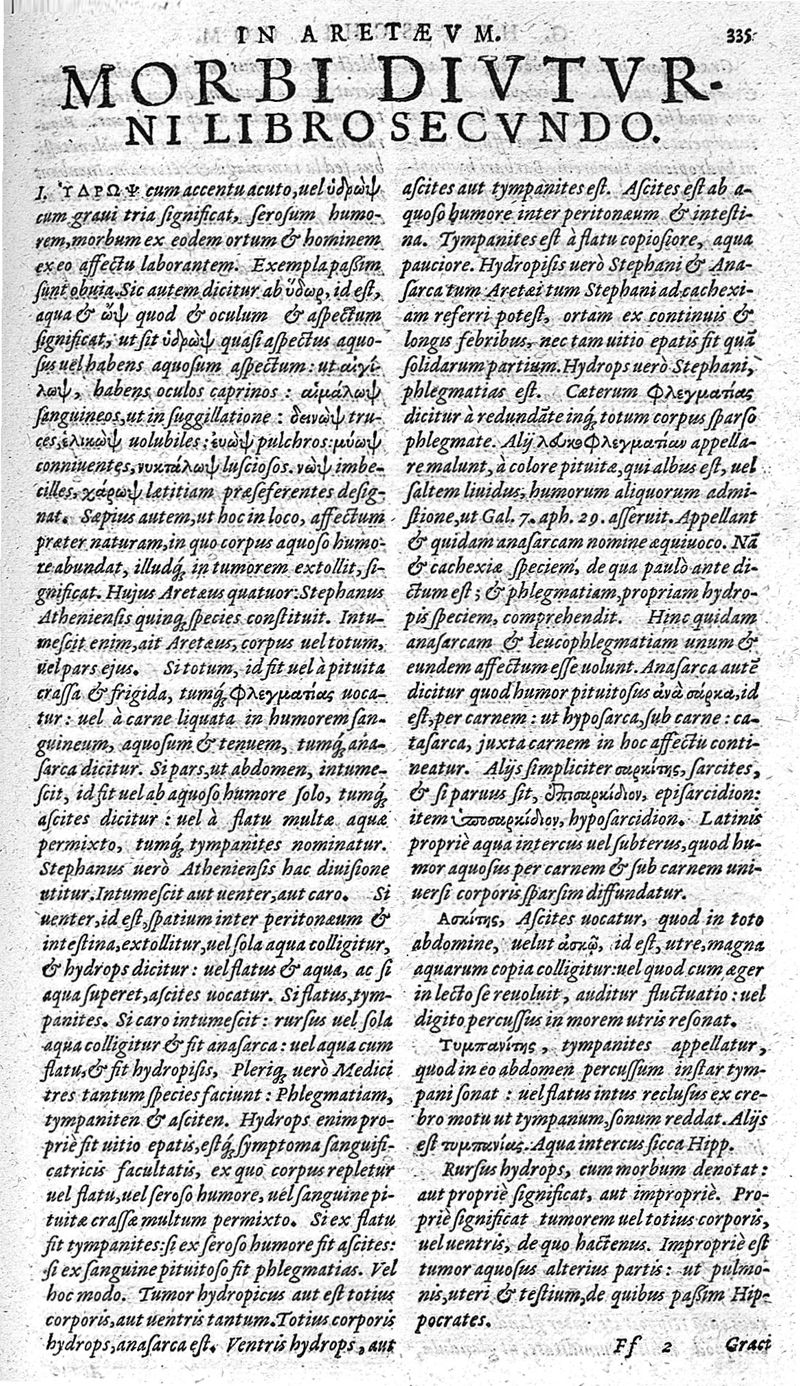 IN ARETÆVM.
335
MORBI DIVTVR-
NI LIBRO SECVNDO.
I. ὙΔΡΩΨ cum accentu acuto, uel ὑδρὼψ
cum graui tria significat, serosum humo-
rem, morbum ex eodem ortum & hominem
ex eo affectu laborantem. Exempla passim
sunt obuia. Sic autem dicitur ab ὕδωρ, id est,
aqua & ὢψ quod & oculum & aspectum
significat, ut sit ὑδρὼψ quasi aspectus aquo-
sus uel habens aquosum aspectum: ut αἰγί-
λωψ, habens oculos caprinos: αἱμάλωψ
sanguineos, ut in suggillatione: δεινὼψ tru-
ces, ἑλικὼψ uolubiles: ἐυὼψ pulchros: μύωψ
conniuentes, νυκτάλωψ lusciosos. νὼψ imbe-
cilles, χάρωψ lætitiam præseferentes desig-
nat. Sæpius autem, ut hoc in loco, affectum
præter naturam, in quo corpus aquoso humo-
re abundat, illudq; in tumorem extollit, si-
gnificat. Hujus Aretæus quatuor: Stephanus
Atheniensis quinq; species constituit. Intu-
mescit enim, ait Aretæus, corpus uel totum,
uel pars ejus. Si totum, id fit uel à pituita
crassa & frigida, tumq; φλεγματίας uoca-
tur: uel à carne liquata in humorem san-
guineum, aquosum & tenuem, tumq; ana-
sarca dicitur. Si pars, ut abdomen, intume-
scit, id fit uel ab aquoso humore solo, tumq;
ascites dicitur: uel à flatu multæ aquæ
permixto, tumq; tympanites nominatur.
Stephanus uerò Atheniensis hac diuisione
utitur. Intumescit aut uenter, aut caro. Si
uenter, id est, spatium inter peritonæum &
intestina, extollitur, uel sola aqua colligitur,
& hydrops dicitur: uel flatus & aqua, ac si
aqua superet, ascites uocatur. Si flatus, tym-
panites. Si caro intumescit: rursus uel sola
aqua colligitur & fit anasarca: uel aqua cum
flatu, & fit hydropisis, Pleriq; uerò Medici
tres tantum species faciunt: Phlegmatiam,
tympaniten & asciten. Hydrops enim pro-
priè fit uitio epatis, estq; symptoma sanguifi-
catricis facultatis, ex quo corpus repletur
uel flatu, uel seroso humore, uel sanguine pi-
tuitæ crassæ multum permixto. Si ex flatu
fit tympanites: si ex seroso humore fit ascites:
si ex sanguine pituitoso fit phlegmatias. Vel
hoc modo. Tumor hydropicus aut est totius
corporis, aut uentris tantum. Totius corporis
hydrops, anasarca est. Ventris hydrops, aut
ascites aut tympanites est. Ascites est ab a-
quoso humore inter peritonæum & intesti-
na. Tympanites est à flatu copiosiore, aqua
pauciore. Hydropisis uerò Stephani & Ana-
sarca tum Aretæi tum Stephani ad cachexi-
am referri potest, ortam ex continuis &
longis febribus, nec tam uitio epatis fit quã
solidarum partium. Hydrops uerò Stephani,
phlegmatias est. Cæterum φλεγματίας
dicitur à redundãte inq; totum corpus sparso
phlegmate. Alij λευκοφλεγματίαν appella-
re malunt, à colore pituitæ, qui albus est, uel
saltem liuidus, humorum aliquorum admi-
stione, ut Gal. 7. aph. 29. asseruit. Appellant
& quidam anasarcam nomine æquiuoco. Nã
& cachexiæ speciem, de qua paulò ante di-
ctum est; & phlegmatiam, propriam hydro-
pis speciem, comprehendit. Hinc quidam
anasarcam & leucophlegmatiam unum &
eundem affectum esse uolunt. Anasarca autẽ
dicitur quod humor pituitosus ἀνὰ σάρκα, id
est, per carnem: ut hyposarca, sub carne: ca-
tasarca, juxta carnem in hoc affectu conti-
neatur. Alijs simpliciter σαρκίτης, sarcites,
& si paruus sit, ἐπισαρκίδιον, episarcidion:
item ὑποσαρκίδιον, hyposarcidion. Latinis
propriè aqua intercus uel subterus, quod hu-
mor aquosus per carnem & sub carnem uni-
uersi corporis sparsim diffundatur.
Ἀσκίτης, Ascites uocatur, quod in toto
abdomine, uelut ἀσκῷ, id est, utre, magna
aquarum copia colligitur: uel quod cum æger
in lecto se reuoluit, auditur fluctuatio: uel
digito percussus in morem utris resonat.
Τυμπανίτης, tympanites appellatur,
quod in eo abdomen percussum instar tym-
pani sonat: uel flatus intus reclusus ex cre-
bro motu ut tympanum, sonum reddat. Alijs
est τυμπανίας. Aqua intercus sicca Hipp.
Rursus hydrops, cum morbum denotat:
aut propriè significat, aut impropriè. Pro-
priè significat tumorem uel totius corporis,
uel uentris, de quo hactenus. Impropriè est
tumor aquosus alterius partis: ut pulmo-
nis, uteri & testium, de quibus passim Hip-
pocrates.
Ff 2 Graci